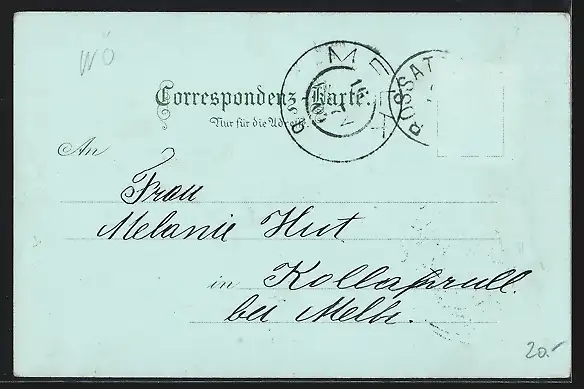 WÖ
Correspondenz-Karte.
Nur für die Adresse.
ROSSAT
An
Frau
Melanie Hut
in Kollapriell
bei Melk.
20.-